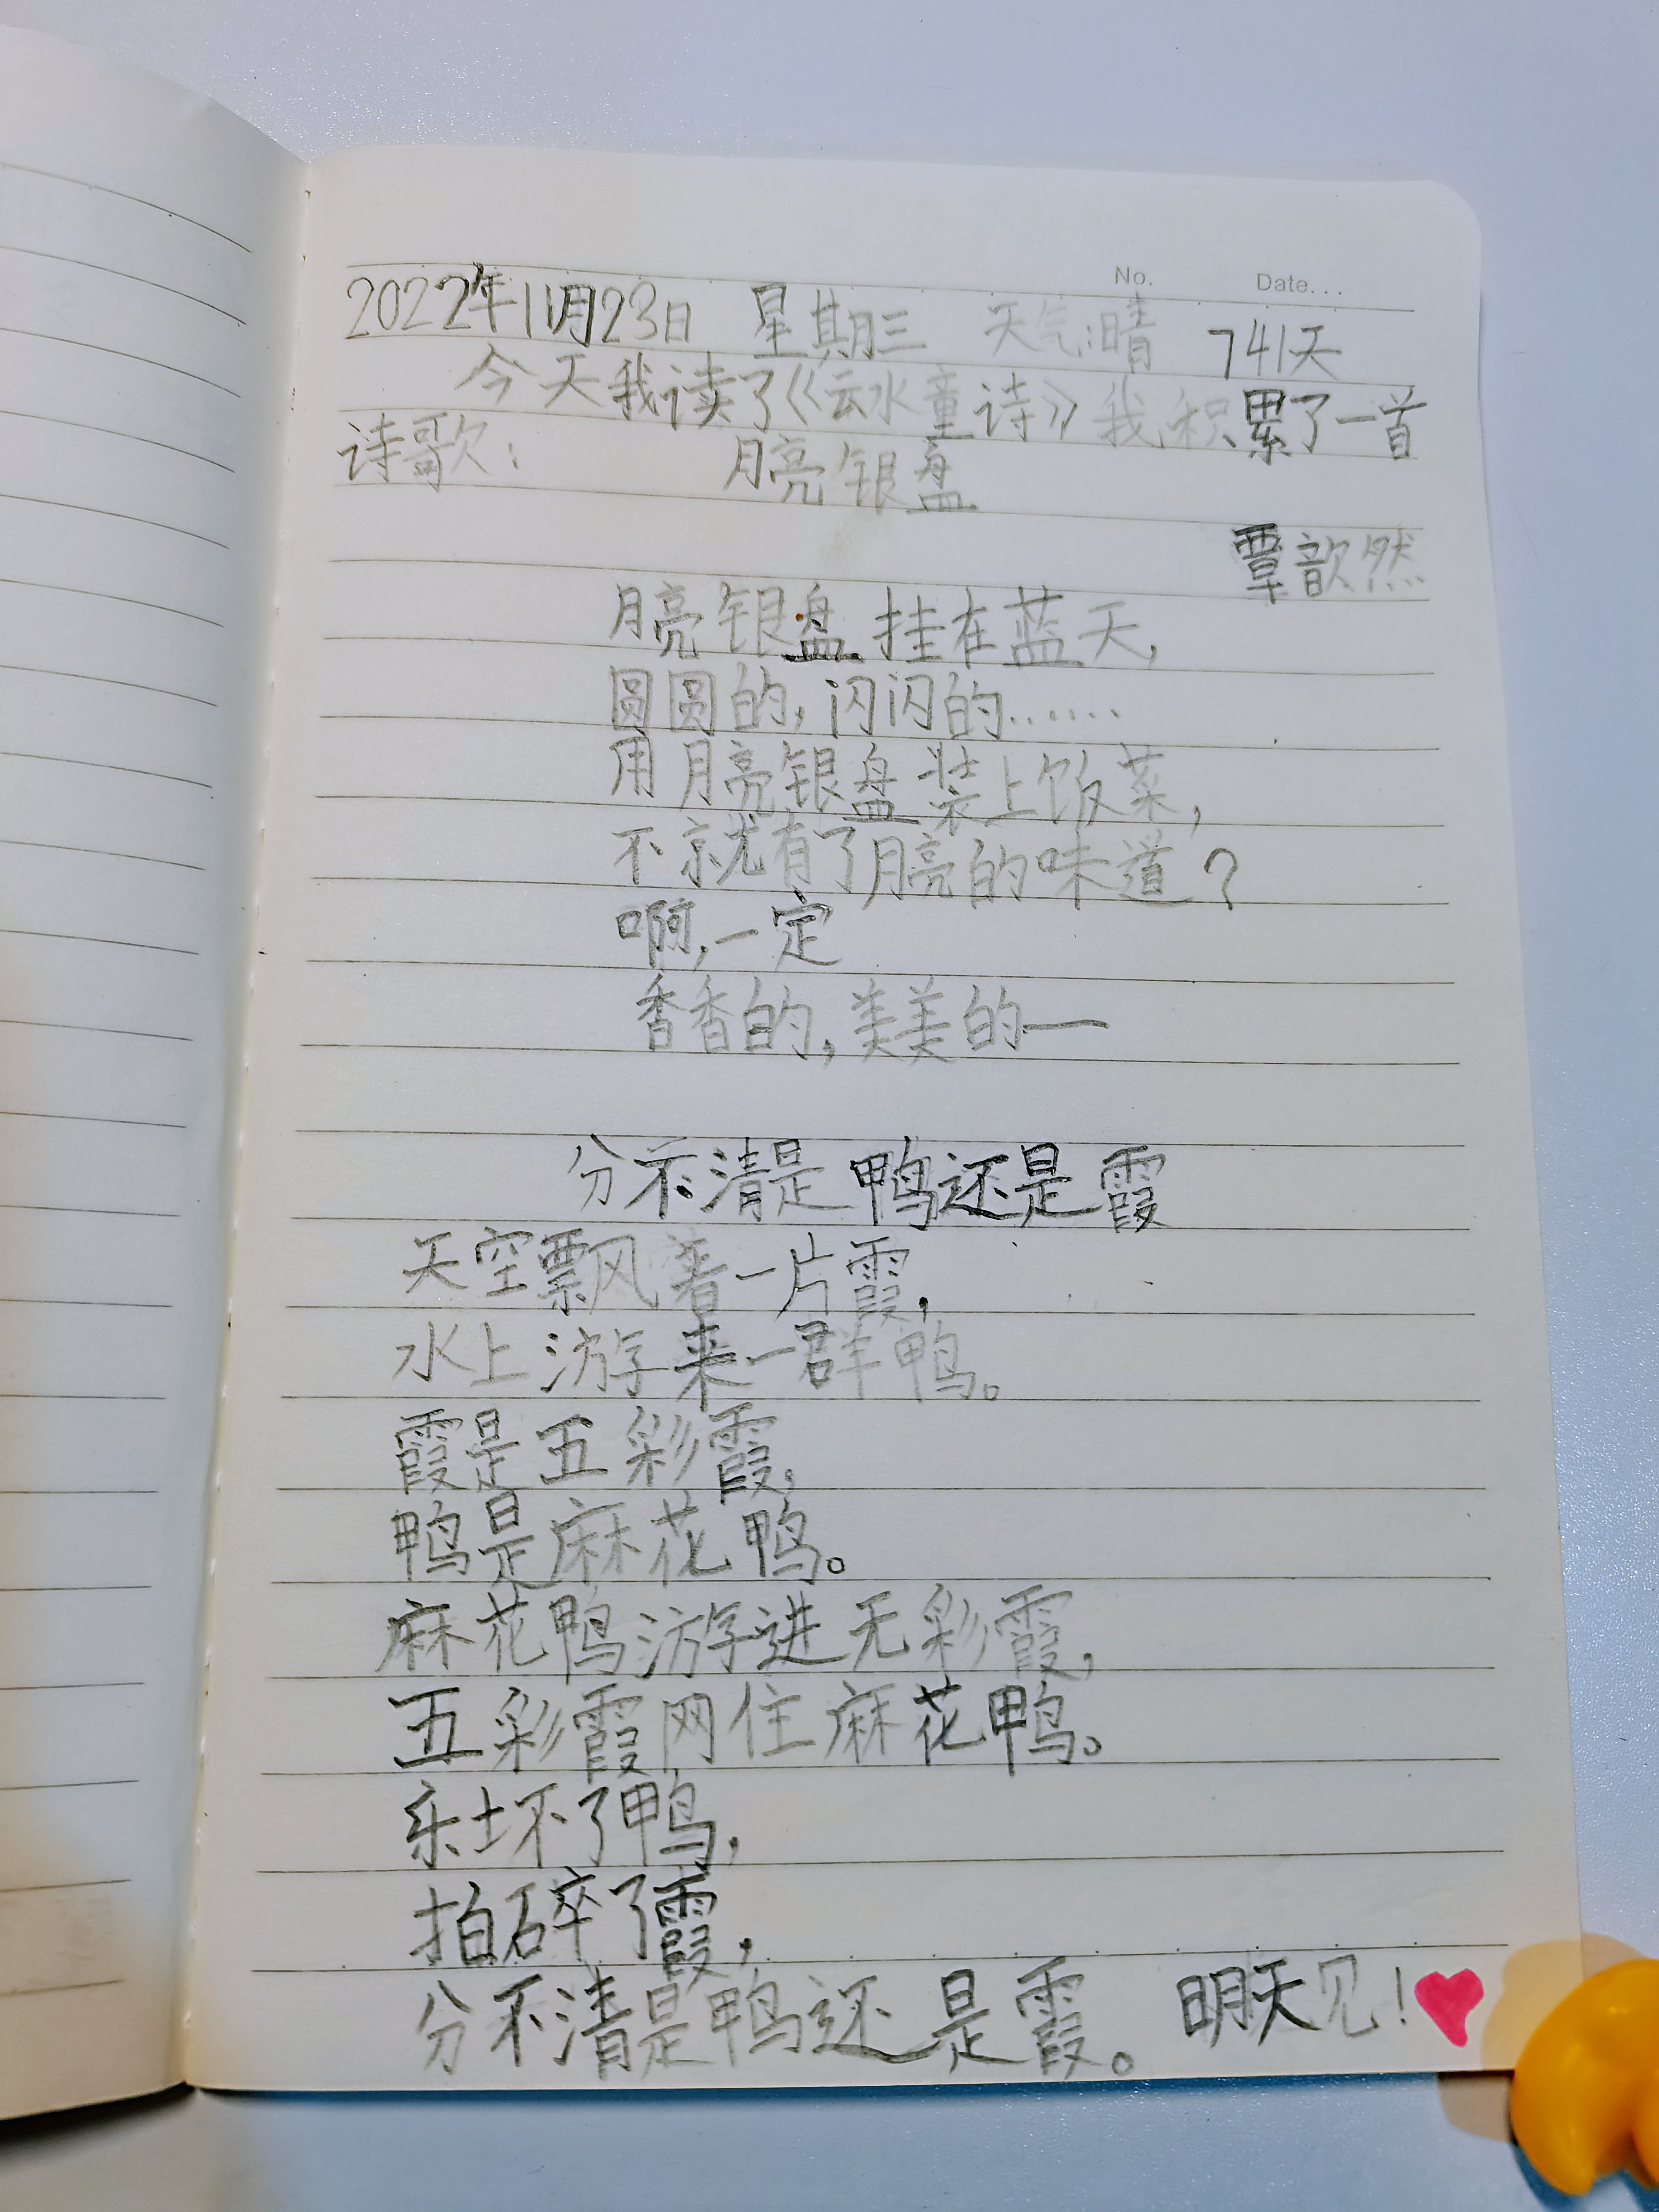 No. Date...
2022年11月23日 星期三 天气:晴 741天
今天我读了《云水童诗》我积累了一首
诗歌: 月亮银盘
覃歆然
月亮银盘挂在蓝天,
圆圆的,闪闪的……
用月亮银盘装上饭菜,
不就有了月亮的味道?
啊,一定
香香的,美美的—
分不清是鸭还是霞
天空飘着一片霞,
水上游来一群鸭。
霞是五彩霞,
鸭是麻花鸭。
麻花鸭游进无彩霞,
五彩霞网住麻花鸭。
乐坏了鸭,
拍碎了霞,
分不清是鸭还是霞。 明天见!